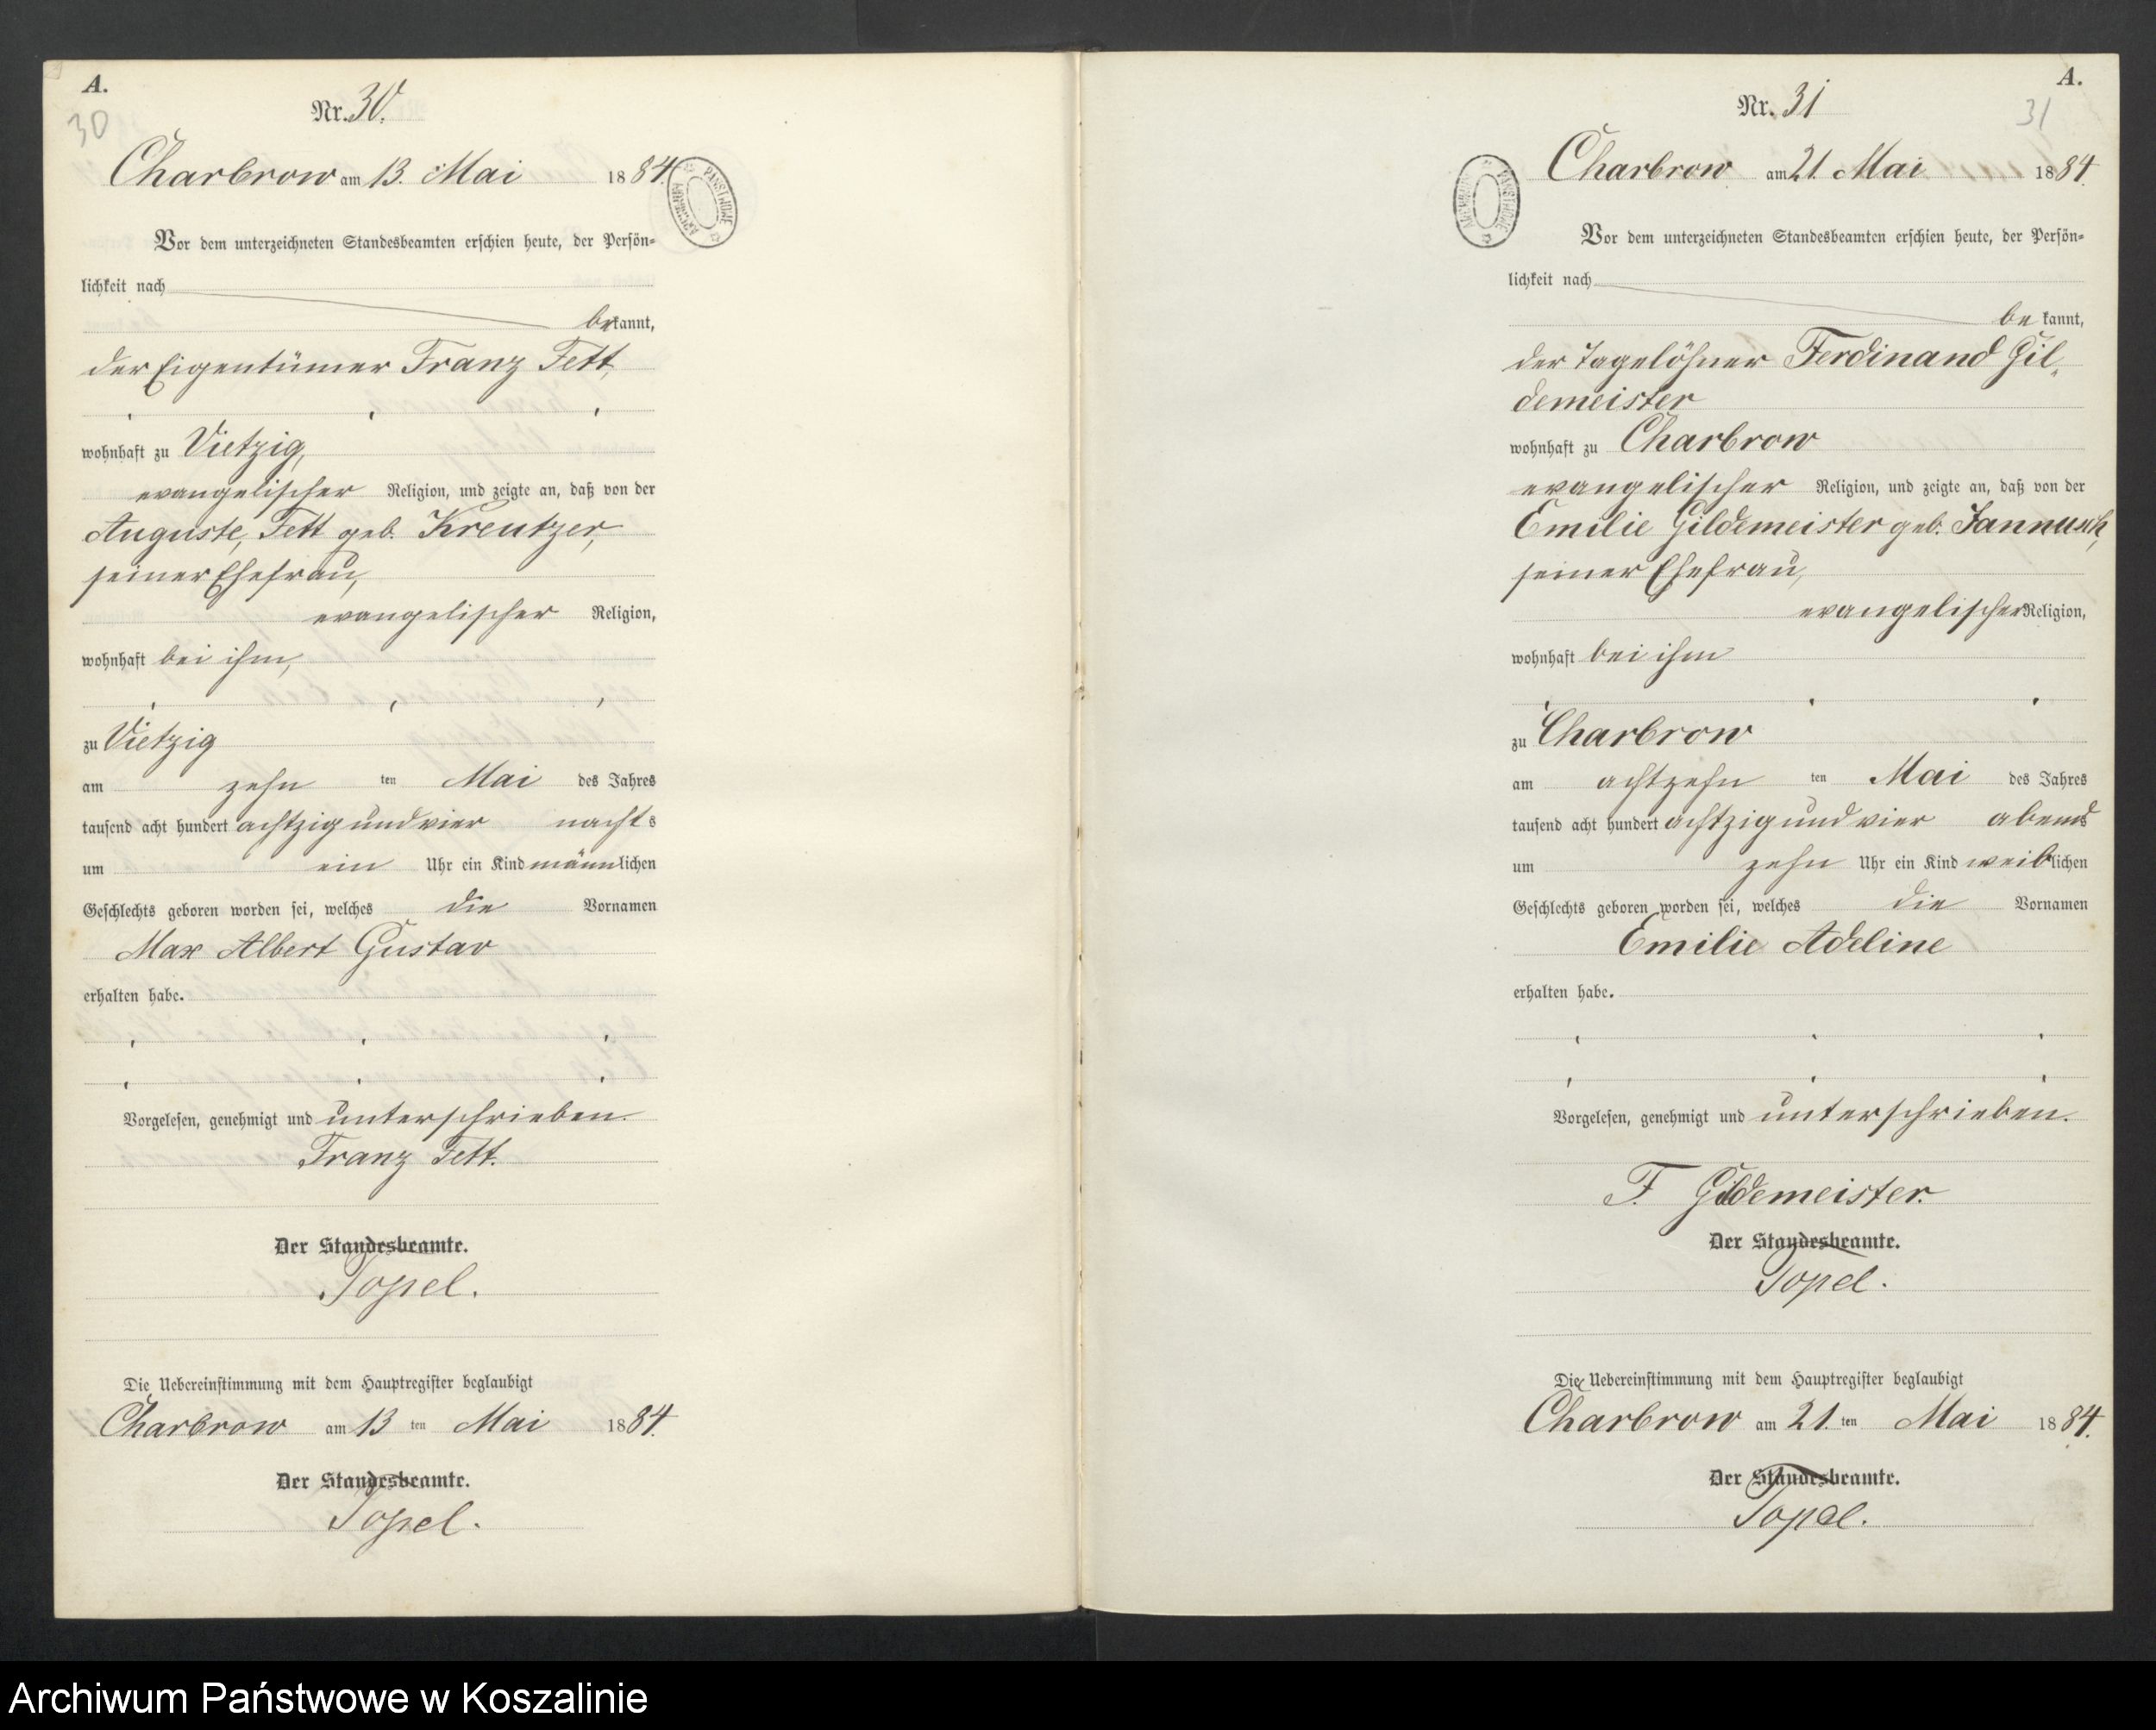 A.
Nr. 30.
30
Charbrow am 13. Mai 1884.
ARCHIWUM PAŃSTWOWE
Vor dem unterzeichneten Standesbeamten erschien heute, der Persön-
lichkeit nach
bekannt,
der Eigentümer Franz Fett,
wohnhaft zu Vietzig,
evangelischer Religion, und zeigte an, daß von der
Auguste, Fett geb. Kreutzer,
seiner Ehefrau,
evangelischer Religion,
wohnhaft bei ihm,
zu Vietzig
am zehn ten Mai des Jahres
tausend acht hundert achtzig und vier nachts
um ein Uhr ein Kind männlichen
Geschlechts geboren worden sei, welches die Vornamen
Max Albert Gustav
erhalten habe.
Vorgelesen, genehmigt und unterschrieben.
Franz Fett.
Der Standesbeamte.
Topel.
Die Uebereinstimmung mit dem Hauptregister beglaubigt
Charbrow am 13 ten Mai 1884.
Der Standesbeamte.
Topel.
A.
Nr. 31
31
Charbrow am 21. Mai 1884.
ARCHIWUM PAŃSTWOWE
Vor dem unterzeichneten Standesbeamten erschien heute, der Persön-
lichkeit nach
bekannt,
der Tagelöhner Ferdinand Gil-
demeister
wohnhaft zu Charbrow
evangelischer Religion, und zeigte an, daß von der
Emilie Gildemeister geb. Jannusch,
seiner Ehefrau,
evangelischer Religion,
wohnhaft bei ihm
zu Charbrow
am achtzehn ten Mai des Jahres
tausend acht hundert achtzig und vier abends
um zehn Uhr ein Kind weiblichen
Geschlechts geboren worden sei, welches die Vornamen
Emilie Adeline
erhalten habe.
Vorgelesen, genehmigt und unterschrieben.
F. Gildemeister.
Der Standesbeamte.
Topel.
Die Uebereinstimmung mit dem Hauptregister beglaubigt
Charbrow am 21. ten Mai 1884.
Der Standesbeamte.
Topel.
Archiwum Państwowe w Koszalinie